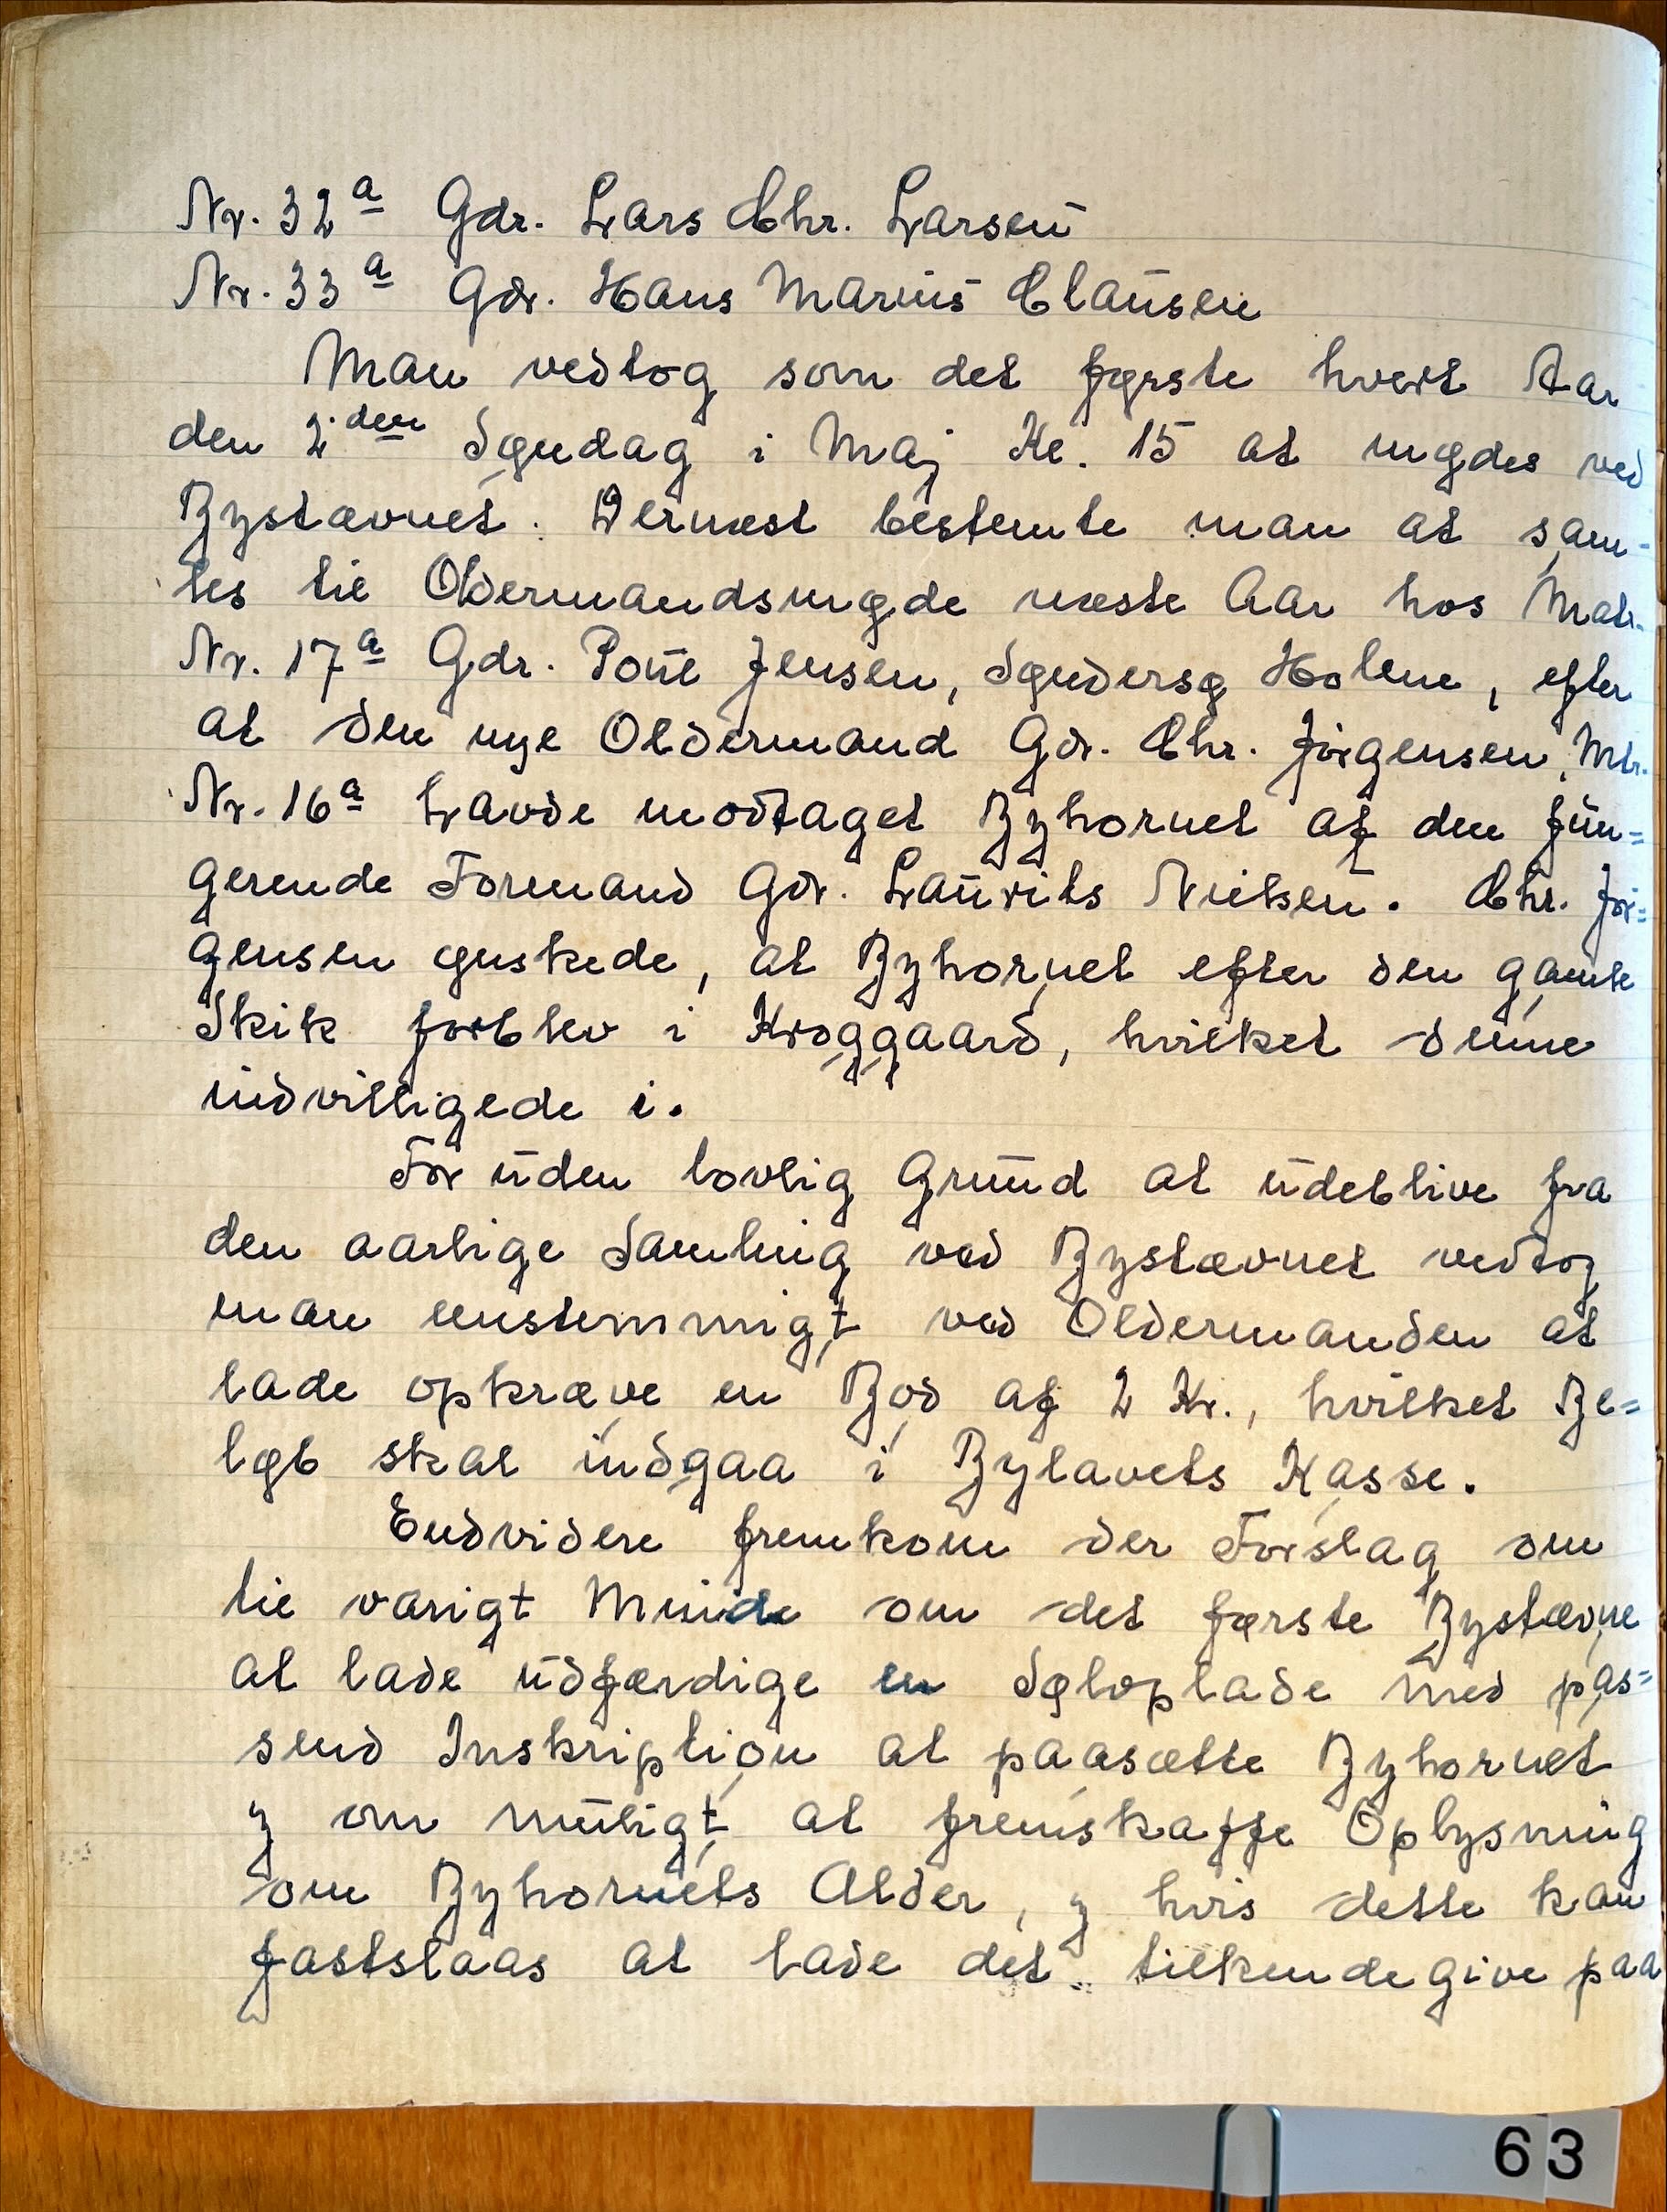 Nr. 32a Gdr. Lars Chr. Larsen
Nr. 33a Gdr. Hans Marius Clausen
Man vedtog som det første hvert Aar
den 2den Søndag i Maj Kl. 15 at mødes ved
Bystævnet. Dernæst bestemte man at sam-
les til Oldermandsmøde næste Aar hos Matr.
Nr. 17a Gdr. Poul Jensen, Søndersø Holme, efter
at den nye Oldermand Gdr. Chr. Jörgensen, Mtr.
Nr. 16a havde modtaget Byhornet af den fun=
gerende Formand Gdr. Laurits Nielsen. Chr. Jör=
gensen ønskede, at Byhornet efter den gamle
Skik forblev i Kroggaard, hvilket denne
indvilligede i.
For uden lovlig Grund at udeblive fra
den aarlige Samling ved Bystævnet vedtog
man eenstemmigt ved Oldermanden at
lade opkræve en Bod af 2 Kr., hvilket Be=
løb skal indgaa i Bylavets Kasse.
Endvidere fremkom der Forslag om
til varigt Minde om det første Bystævne
at lade udfærdige en Sølvplade med pas=
send Inskription at paasætte Byhornet
og om muligt at fremskaffe Oplysning
om Byhornets Alder, og hvis dette kan
fastslaas at lade det tilkendegive paa
63